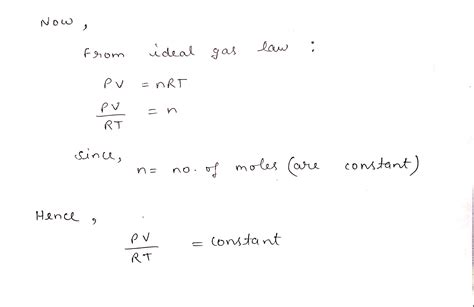 Now,
From ideal gas law :
PV = nRT
PV/RT = n
since,
n = no. of moles (are constant)
Hence,
PV/RT = constant